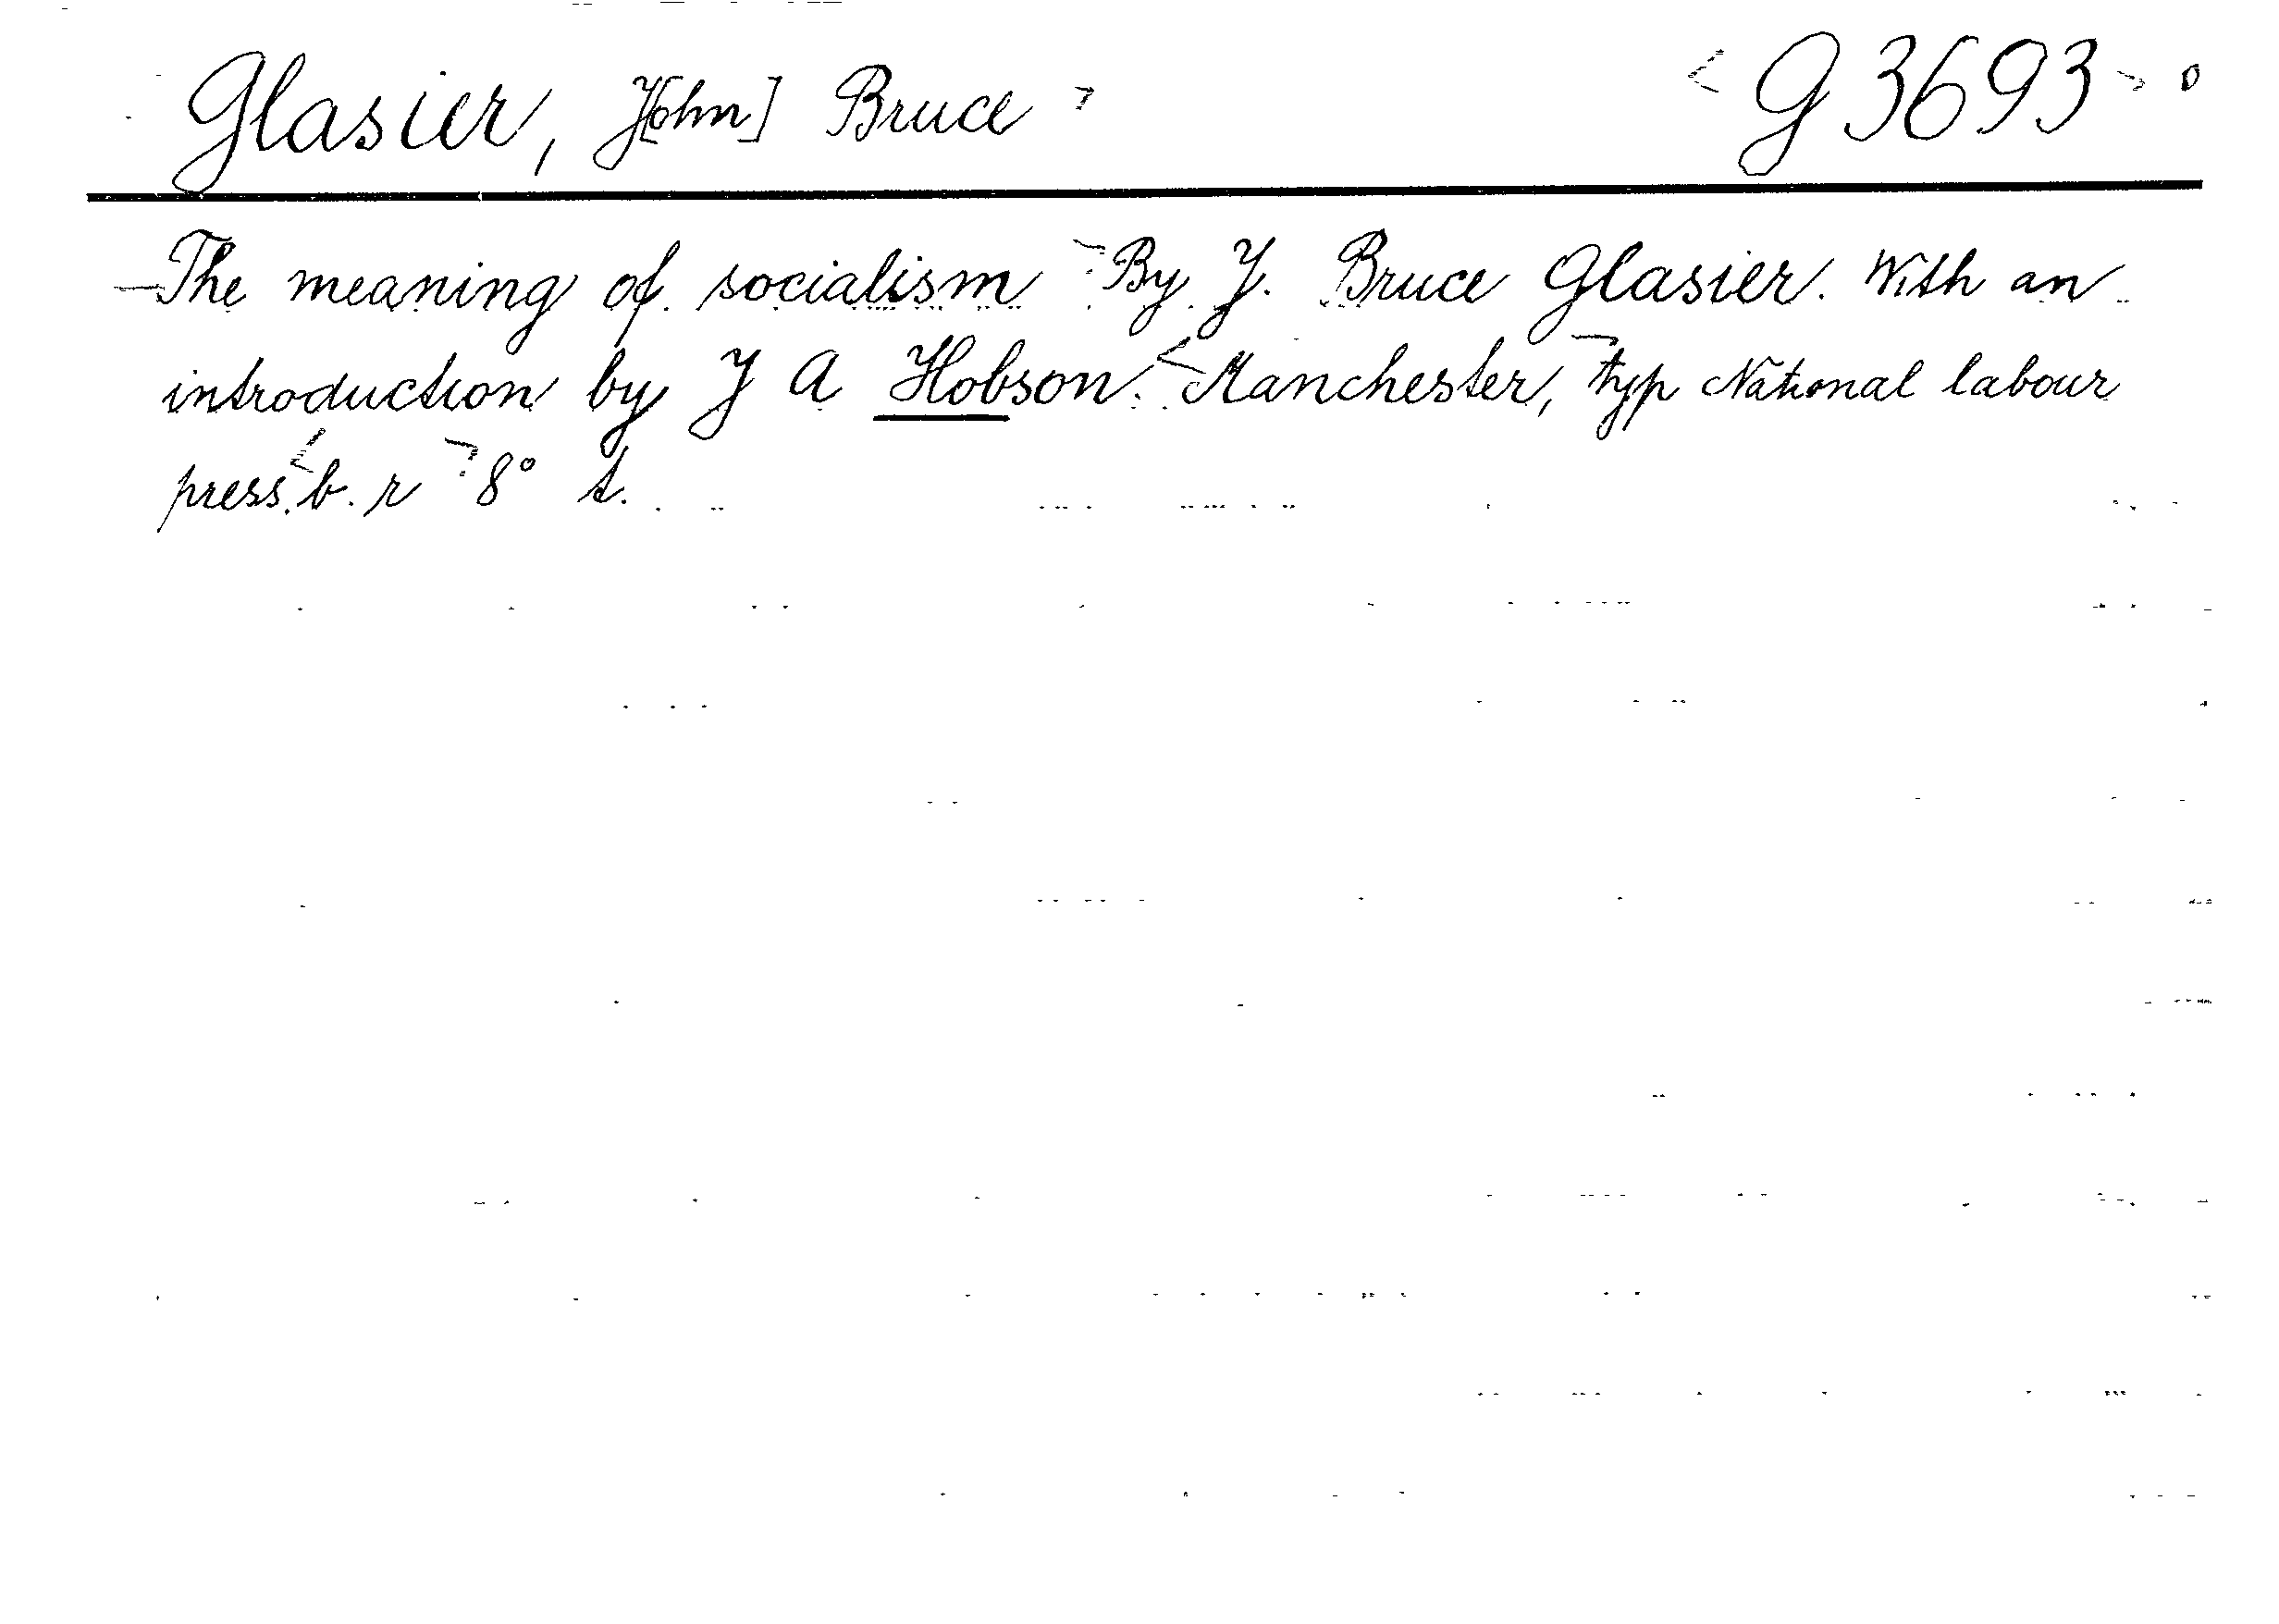 Glasier, J[ohn] Bruce G 3693
The meaning of socialism By J. Bruce Glasier. With an
introduction by J A Hobson. Manchester, typ National labour
press. b. r 8° t.